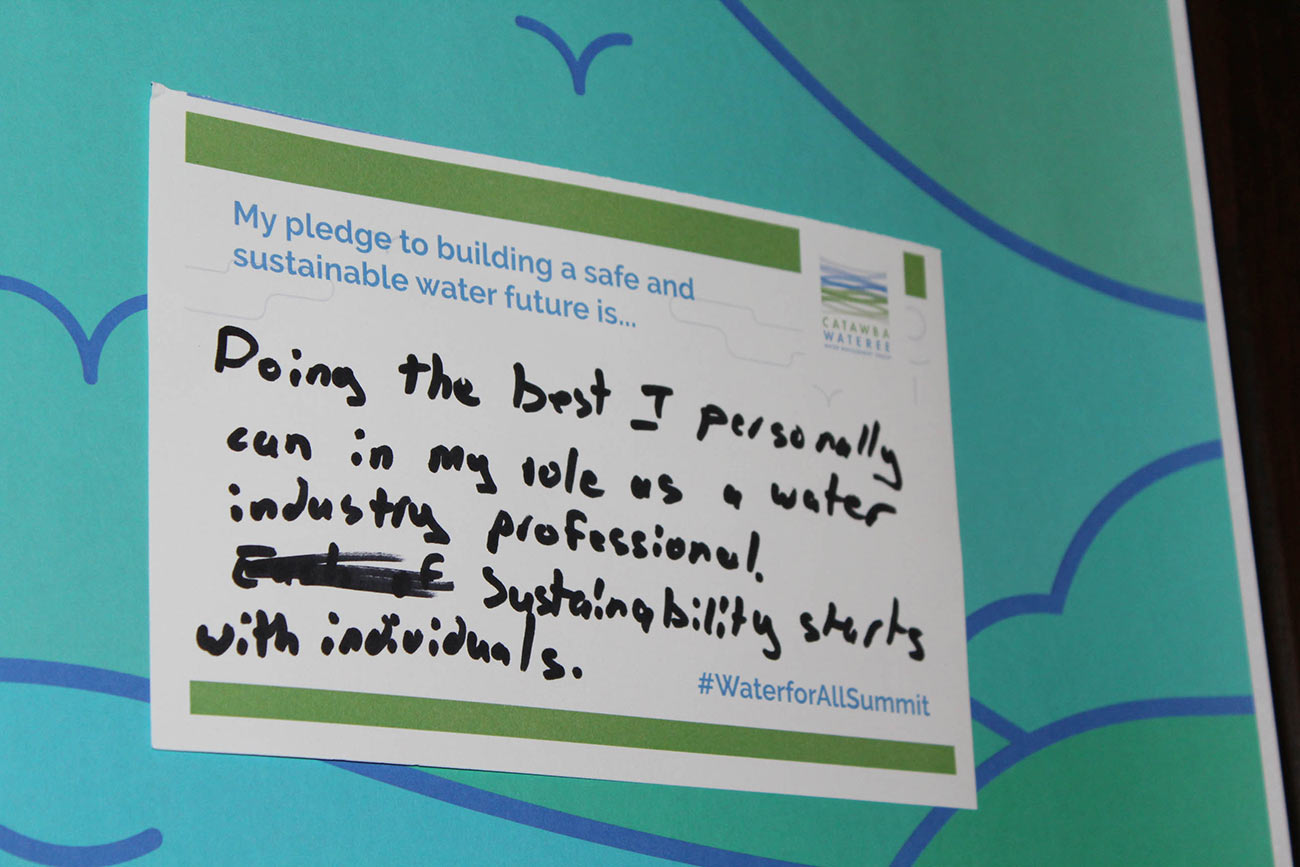 My pledge to building a safe and
sustainable water future is...
CATAWBA
WATEREE
WATER MANAGEMENT GROUP
Doing the best I personally
can in my role as a water
industry professional.
Sustainability starts
with individuals.
#WaterforAllSummit